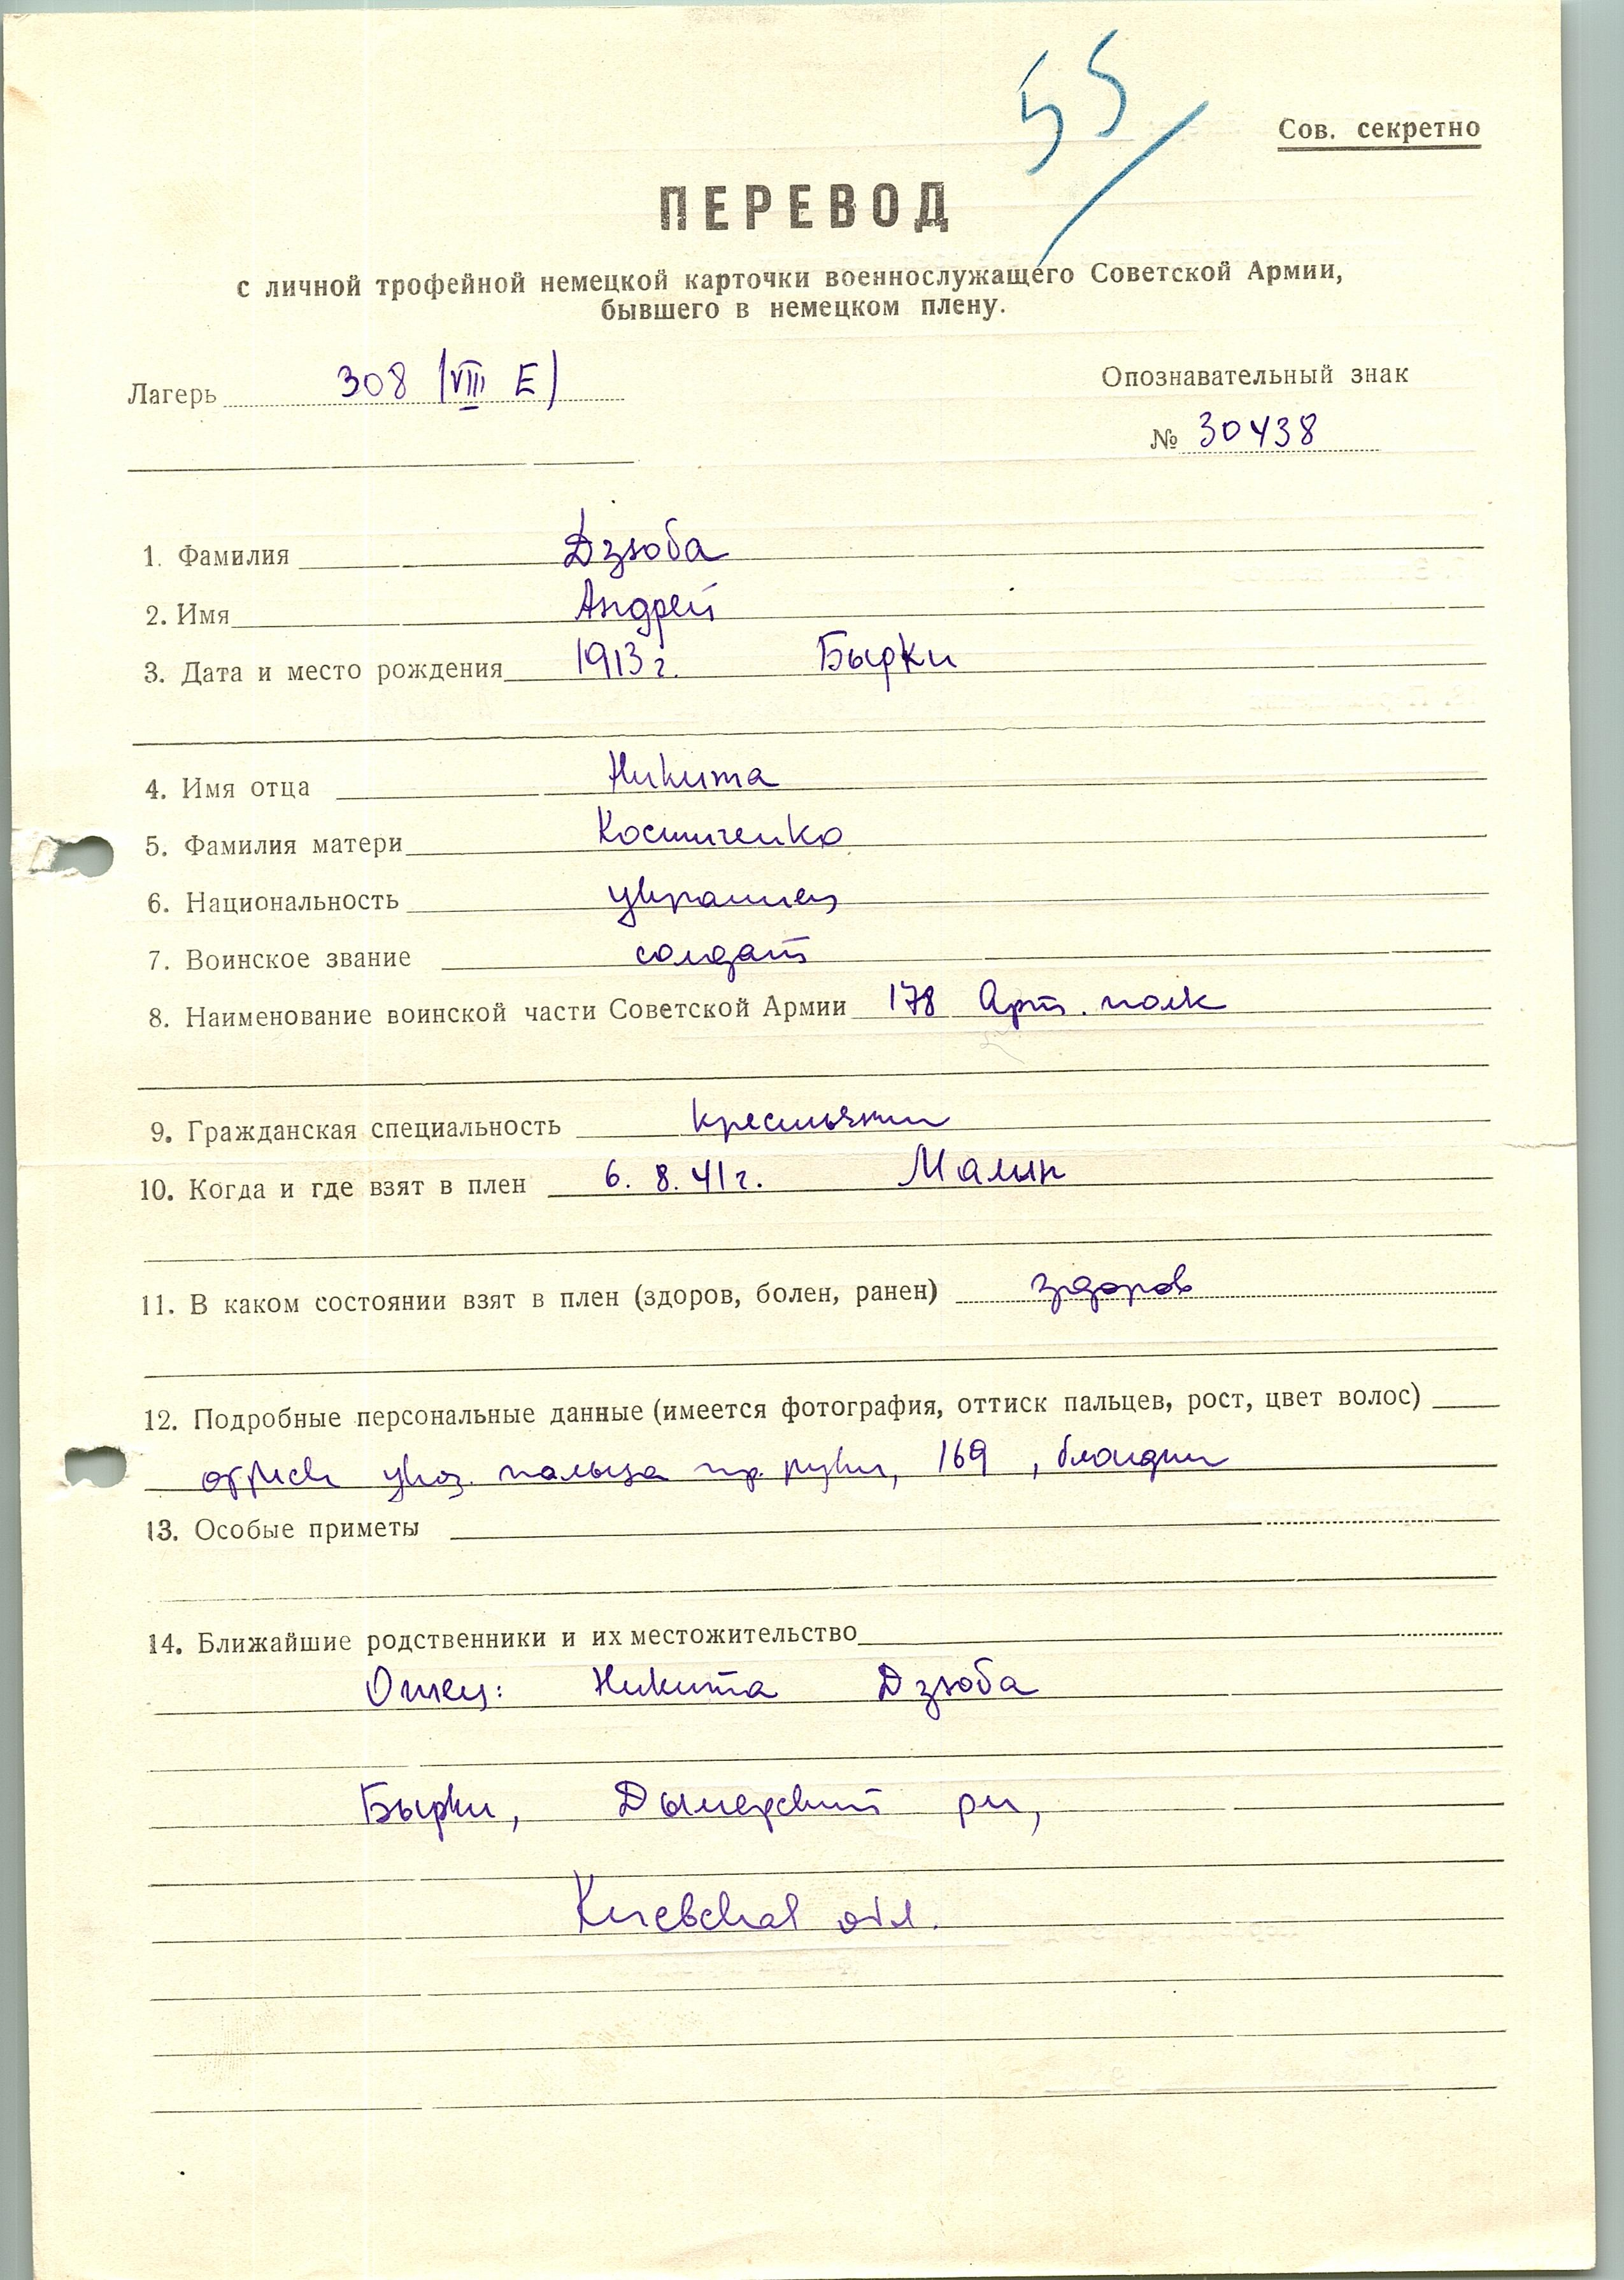 55
Сов. секретно
ПЕРЕВОД
с личной трофейной немецкой карточки военнослужащего Советской Армии,
бывшего в немецком плену.
Лагерь 308 (VIII E)
Опознавательный знак
№ 30438
1. Фамилия Дзюба
2. Имя Андрей
3. Дата и место рождения 1913 г. Бырки
4. Имя отца Никита
5. Фамилия матери Костиченко
6. Национальность украинец
7. Воинское звание солдат
8. Наименование воинской части Советской Армии 178 Арт. полк
9. Гражданская специальность крестьянин
10. Когда и где взят в плен 6. 8. 41 г. Малин
11. В каком состоянии взят в плен (здоров, болен, ранен) здоров
12. Подробные персональные данные (имеется фотография, оттиск пальцев, рост, цвет волос)
оттиск указ. пальца пр. руки, 169, блондин
13. Особые приметы
14. Ближайшие родственники и их местожительство
Отец: Никита Дзюба
Бырки, Дымерский рн,
Киевская обл.